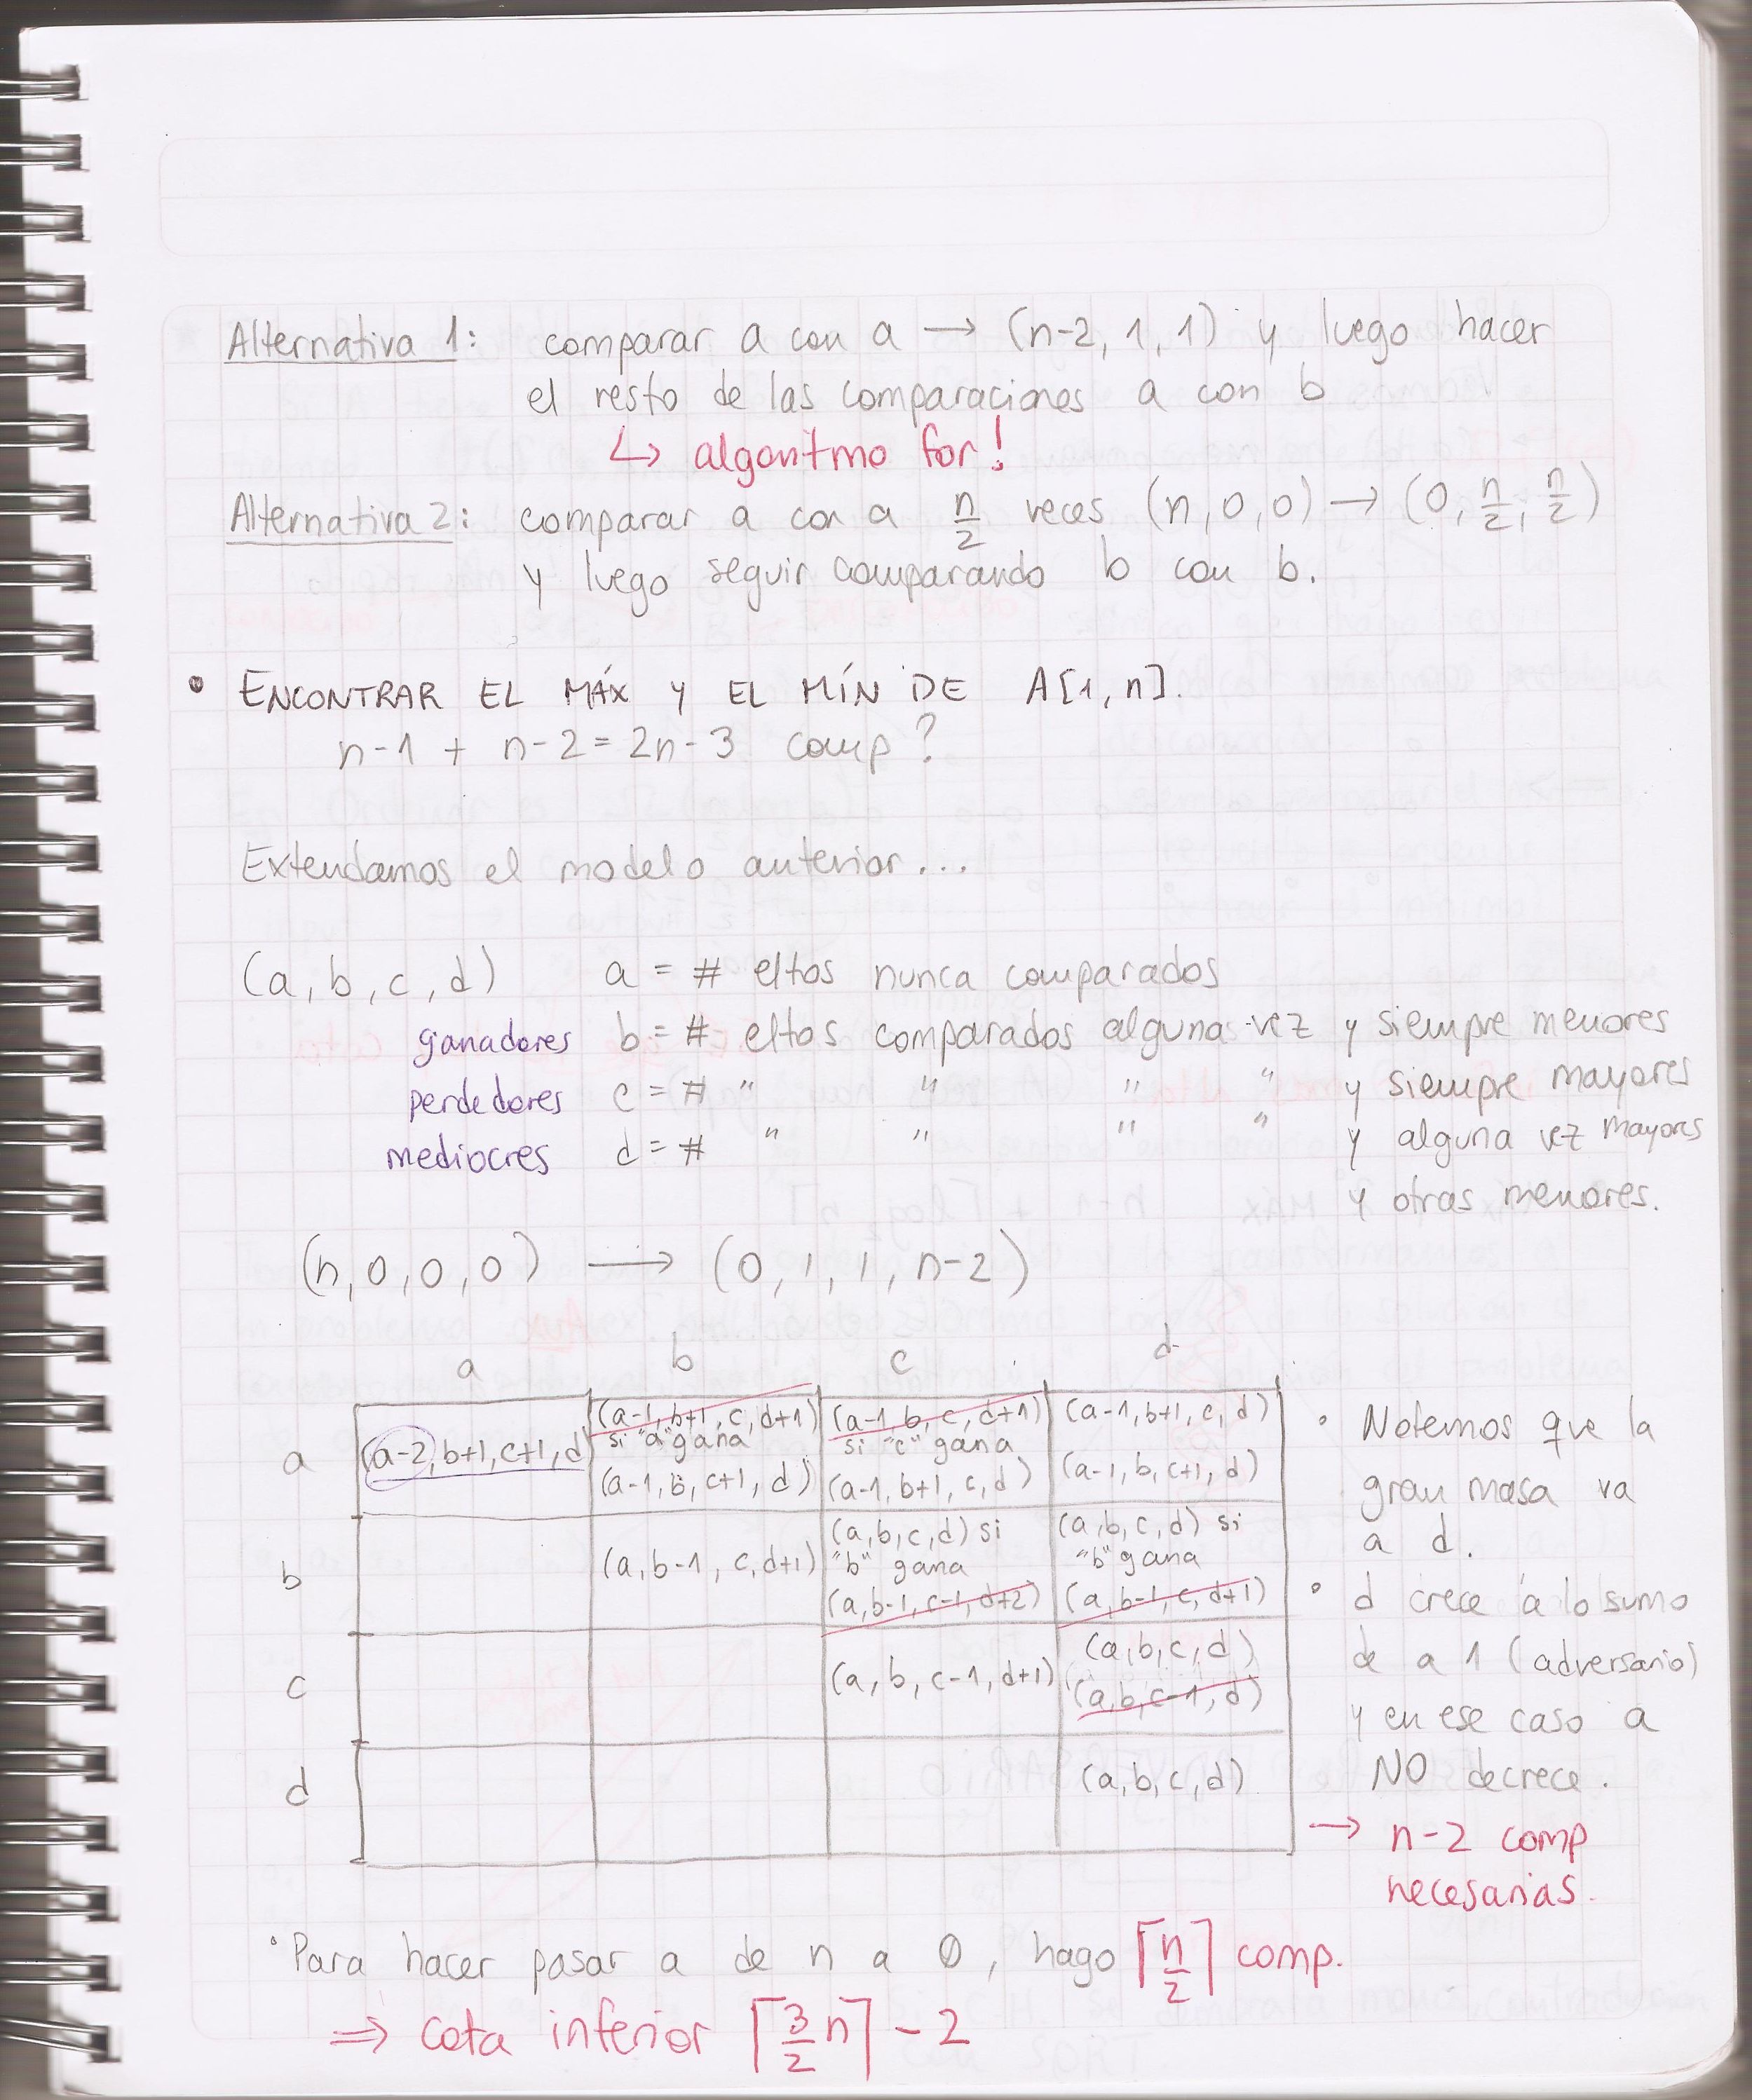 Alternativa 1: comparar a con a → (n-2, 1, 1) y luego hacer
el resto de las comparaciones a con b
↳ algoritmo for!
Alternativa 2: comparar a con a n/2 veces (n,0,0) → (0, n/2, n/2)
y luego seguir comparando b con b.
• ENCONTRAR EL MÁX Y EL MÍN DE A[1,n].
n-1 + n-2 = 2n-3 comp?
Extendamos el modelo anterior...
(a, b, c, d) a = # eltos nunca comparados
ganadores b = # eltos comparados alguna vez y siempre menores
perdedores c = # " " " " y siempre mayores
mediocres d = # " " " " y alguna vez mayores
y otras menores.
(n, 0, 0, 0) → (0, 1, 1, n-2)
a b c d
a
(a-2, b+1, c+1, d)
(a-1, b+1, c, d+1)
si "a" gana
(a-1, b, c+1, d)
(a-1, b, c, d+1)
si "c" gana
(a-1, b+1, c, d)
(a-1, b+1, c, d)
(a-1, b, c+1, d)
b
(a, b-1, c, d+1)
(a, b, c, d) si
"b" gana
(a, b-1, c-1, d+2)
(a, b, c, d) si
"b" gana
(a, b-1, c, d+1)
c
(a, b, c-1, d+1)
(a, b, c, d)
(a, b, c-1, d)
d
(a, b, c, d)
• Notemos que la
gran masa va
a d.
• d crece a lo sumo
de a 1 (adversario)
y en ese caso a
NO decrece.
→ n-2 comp
necesarias.
• Para hacer pasar a de n a 0, hago ⌈n/2⌉ comp.
⇒ cota inferior ⌈3/2 n⌉ - 2